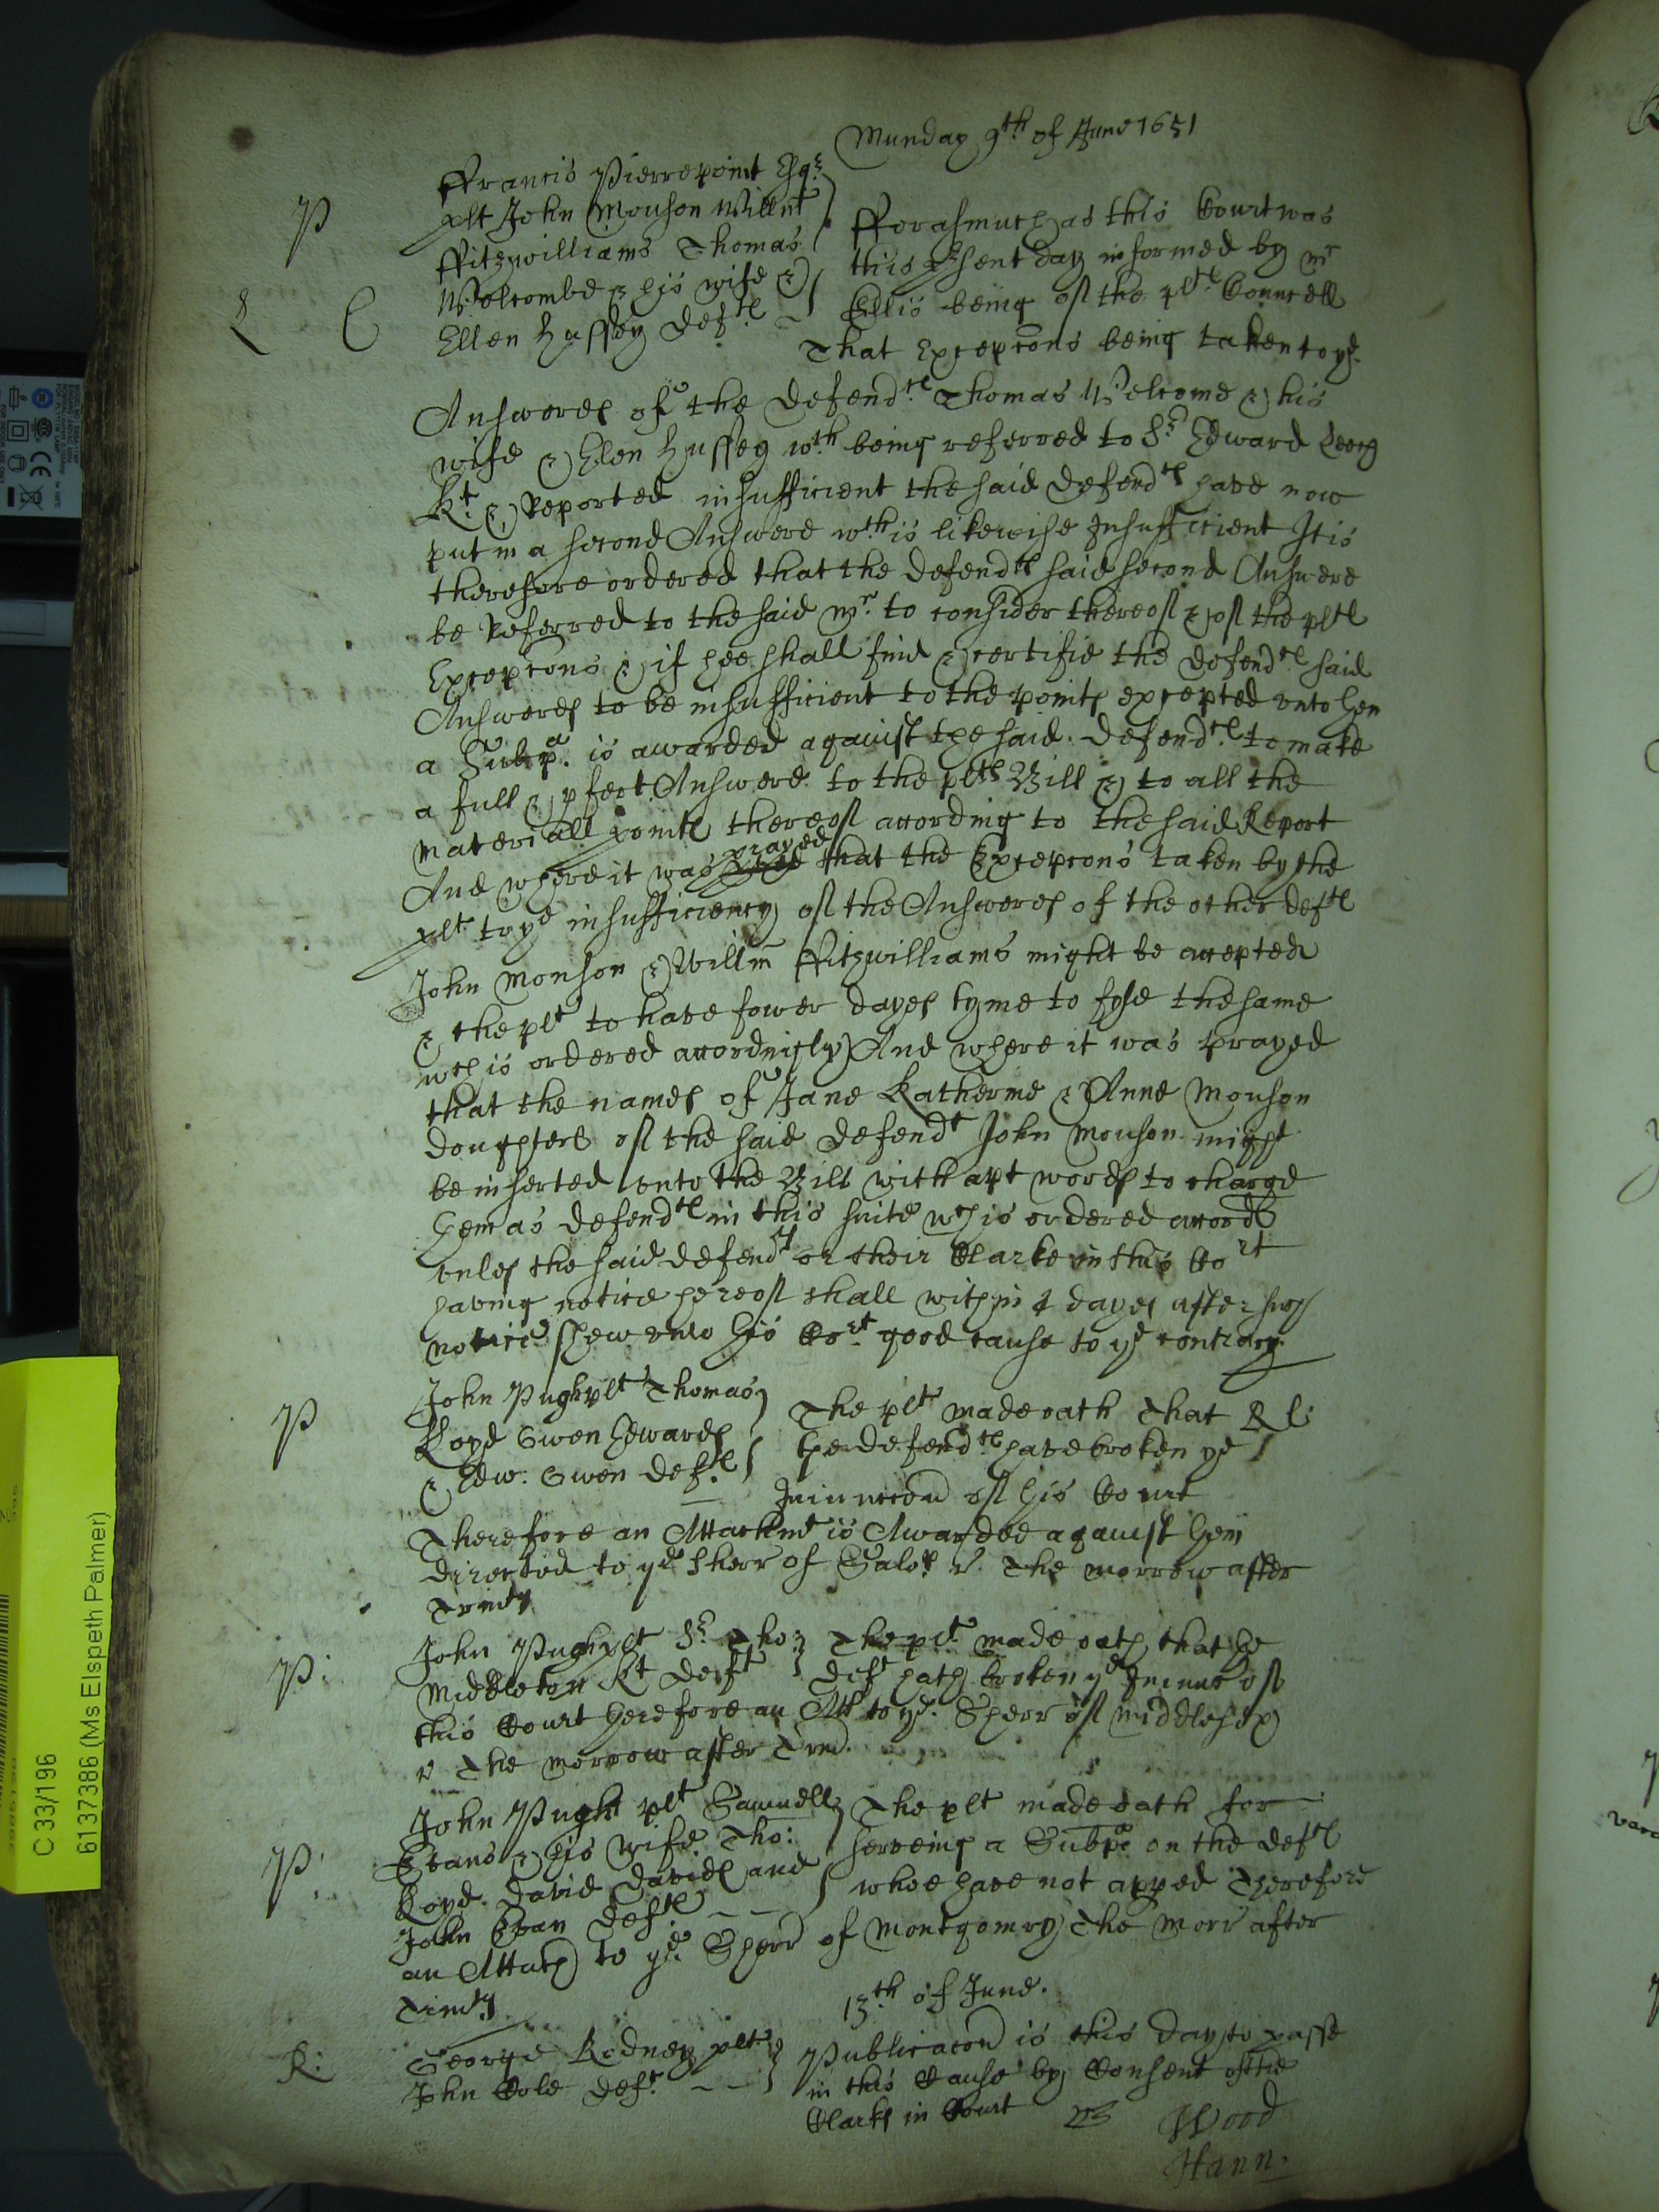 Munday 9th of June 1651
P
ffrancis Pierrepoint Esqr
plt John Monson Willm
ffitzwilliams Thomas
Welcombe & his wife &
Ellen Hussey defts
L C
fforasmuch as this Court was
this psent day informed by mr
Ellis being of the plts Councell
That Excepcons being taken to ye
Answeres of the defendts Thomas Welcome & his
wife & Elen Hussey wch being referred to Sr Edward Leech
Kt & Reported insufficient the said defendts have now
put in a second Answere wch is likewise Insufficient It is
therefore ordered that the defendts said second Answere
be Referred to the said mr to consider thereof & of the plts
Excepcons & if hee shall find & certifie the defendts said
Answeres to be insufficient to the points excepted unto then
a Subpa is awarded against the said defendts to make
a full & pfect Answere to the plts Bill & to all the
materiall points thereof according to the said Report
And where it was prayed that the Excepcons taken by the
plt to ye insufficiency of the Answeres of the other defts
John Monson & Willm ffitzwilliams might be accepted
& the plt to have fower dayes tyme to fyle the same
wch is ordered accordingly And where it was prayed
that the names of Jane Katherine & Anne Monson
doughters of the said defendt John Monson might
be inserted into the Bill with apt words to charge
them as defendts in this suite wch is ordered accord
unles the said defendts or their Clarke in this Cort
having notice hereof shall within 4 dayes after such
notice shew unto this Cort good cause to ye contrary
P
John Pugh plt Thomas
Lloyd Owen Edwards
& Edw: Owen defts
The plt made oath That
the defendts have broken ye
R l:
Iniunccon of this Court
Therefore an Attachmt is Awarded against them
directed to ye Sherr of Salop r. The morrow after
Trinity
P:
John Pugh plt Sr Tho:
Middleton Kt deft
The plt made oath that the
deft hath broken ye Iniunc of
this Court therefore an Att to ye Sherr of Middlesex
r The morrow after Trin.
P:
John Pugh plt Samuell
Evans & his wife Tho:
Lloyd David Davies and
John Evan defts
The plt made oath for
serveing a Subpa on the defts
whoe have not apped Therefore
an Attach to ye Sherr of Montgomry The morr after
Trinity
13th of June.
R:
George Rodney plt
John Cole deft
Publicacon is this day to passe
in this Cause by Consent of the
Clarks in Court
Wood
Hann.
C 33/196
6137386 (Ms Elspeth Palmer)